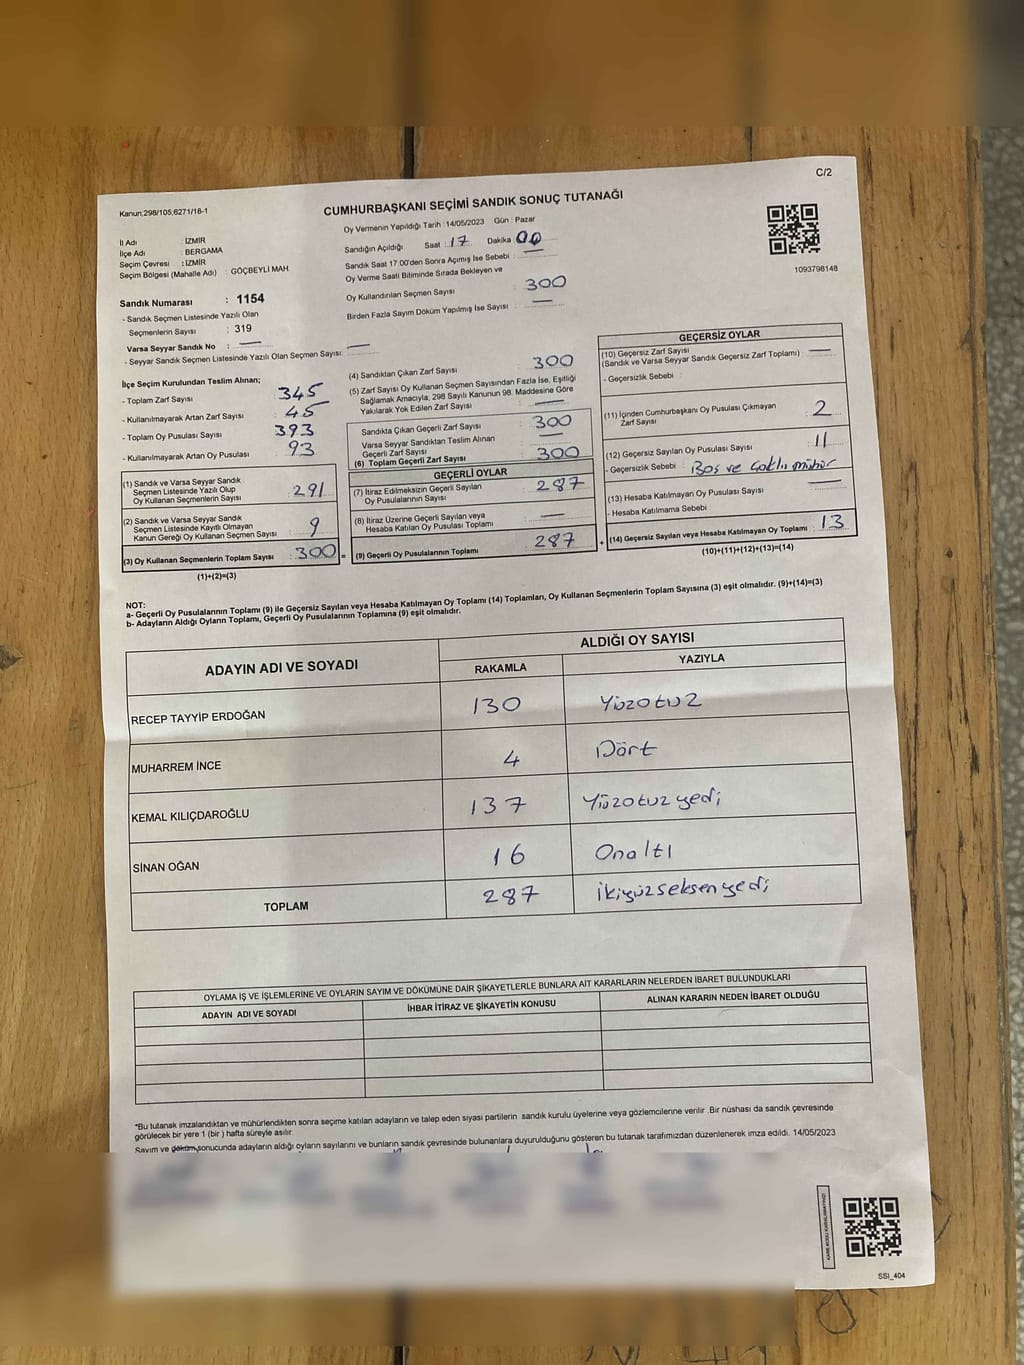 C/2
Kanun;298/105,6271/16-1
CUMHURBAŞKANI SEÇİMİ SANDIK SONUÇ TUTANAĞI
Oy Vermenin Yapıldığı Tarih : 14/05/2023 Gün : Pazar
İl Adı : İZMİR
İlçe Adı : BERGAMA
Seçim Çevresi : İZMİR
Seçim Bölgesi (Mahalle Adı) : GÖÇBEYLİ MAH
Sandığın Açıldığı Saat : 17 Dakika 00
Sandık Saat 17:00'den Sonra Açımış İse Sebebi :
Oy Verme Saati Bitiminde Sırada Bekleyen ve
Oy Kullandırılan Seçmen Sayısı : 300
Birden Fazla Sayım Döküm Yapılmış İse Sayısı : —
1093798148
Sandık Numarası : 1154
- Sandık Seçmen Listesinde Yazılı Olan
Seçmenlerin Sayısı : 319
Varsa Seyyar Sandık No : —
- Seyyar Sandık Seçmen Listesinde Yazılı Olan Seçmen Sayısı: —
İlçe Seçim Kurulundan Teslim Alınan;
- Toplam Zarf Sayısı : 345
- Kullanılmayarak Artan Zarf Sayısı : 45
- Toplam Oy Pusulası Sayısı : 393
- Kullanılmayarak Artan Oy Pusulası : 93
(1) Sandık ve Varsa Seyyar Sandık
Seçmen Listesinde Yazılı Olup
Oy Kullanan Seçmenlerin Sayısı : 291
(2) Sandık ve Varsa Seyyar Sandık
Seçmen Listesinde Kayıtlı Olmayan
Kanun Gereği Oy Kullanan Seçmen Sayısı : 9
(3) Oy Kullanan Seçmenlerin Toplam Sayısı : 300 =
(1)+(2)=(3)
(4) Sandıktan Çıkan Zarf Sayısı : 300
(5) Zarf Sayısı Oy Kullanan Seçmen Sayısından Fazla İse, Eşitliği
Sağlamak Amacıyla; 298 Sayılı Kanunun 98. Maddesine Göre
Yakılarak Yok Edilen Zarf Sayısı : —
Sandıkta Çıkan Geçerli Zarf Sayısı : 300
Varsa Seyyar Sandıktan Teslim Alınan
Geçerli Zarf Sayısı : —
(6) Toplam Geçerli Zarf Sayısı : 300
GEÇERLİ OYLAR
(7) İtiraz Edilmeksizin Geçerli Sayılan
Oy Pusulalarının Sayısı : 287
(8) İtiraz Üzerine Geçerli Sayılan veya
Hesaba Katılan Oy Pusulası Toplamı : —
(9) Geçerli Oy Pusulalarının Toplamı : 287 +
GEÇERSİZ OYLAR
(10) Geçersiz Zarf Sayısı
(Sandık ve Varsa Seyyar Sandık Geçersiz Zarf Toplamı) : —
- Geçersizlik Sebebi :
(11) İçinden Cumhurbaşkanı Oy Pusulası Çıkmayan
Zarf Sayısı : 2
(12) Geçersiz Sayılan Oy Pusulası Sayısı : 11
- Geçersizlik Sebebi : Boş ve Çoklu mühür
(13) Hesaba Katılmayan Oy Pusulası Sayısı : —
- Hesaba Katılmama Sebebi
(14) Geçersiz Sayılan veya Hesaba Katılmayan Oy Toplamı : 13
(10)+(11)+(12)+(13)=(14)
NOT:
a- Geçerli Oy Pusulalarının Toplamı (9) ile Geçersiz Sayılan veya Hesaba Katılmayan Oy Toplamı (14) Toplamları, Oy Kullanan Seçmenlerin Toplam Sayısına (3) eşit olmalıdır. (9)+(14)=(3)
b- Adayların Aldığı Oyların Toplamı, Geçerli Oy Pusulalarının Toplamına (9) eşit olmalıdır.
ADAYIN ADI VE SOYADI
ALDIĞI OY SAYISI
RAKAMLA YAZIYLA
RECEP TAYYİP ERDOĞAN 130 Yüzotuz
MUHARREM İNCE 4 Dört
KEMAL KILIÇDAROĞLU 137 Yüzotuzyedi
SİNAN OĞAN 16 Onaltı
TOPLAM 287 İkiyüzseksenyedi
OYLAMA İŞ VE İŞLEMLERİNE VE OYLARIN SAYIM VE DÖKÜMÜNE DAİR ŞİKAYETLERLE BUNLARA AİT KARARLARIN NELERDEN İBARET BULUNDUKLARI
ADAYIN ADI VE SOYADI İHBAR İTİRAZ VE ŞİKAYETİN KONUSU ALINAN KARARIN NEDEN İBARET OLDUĞU
*Bu tutanak imzalandıktan ve mühürlendikten sonra seçime katılan adayların ve talep eden siyasi partilerin sandık kurulu üyelerine veya gözlemcilerine verilir. Bir nüshası da sandık çevresinde
görülecek bir yere 1 (bir ) hafta süreyle asılır.
Sayım ve döküm sonucunda adayların aldığı oyların sayılarını ve bunların sandık çevresinde bulunanlara duyurulduğunu gösteren bu tutanak tarafımızdan düzenlenerek imza edildi. 14/05/2023
SSI_404